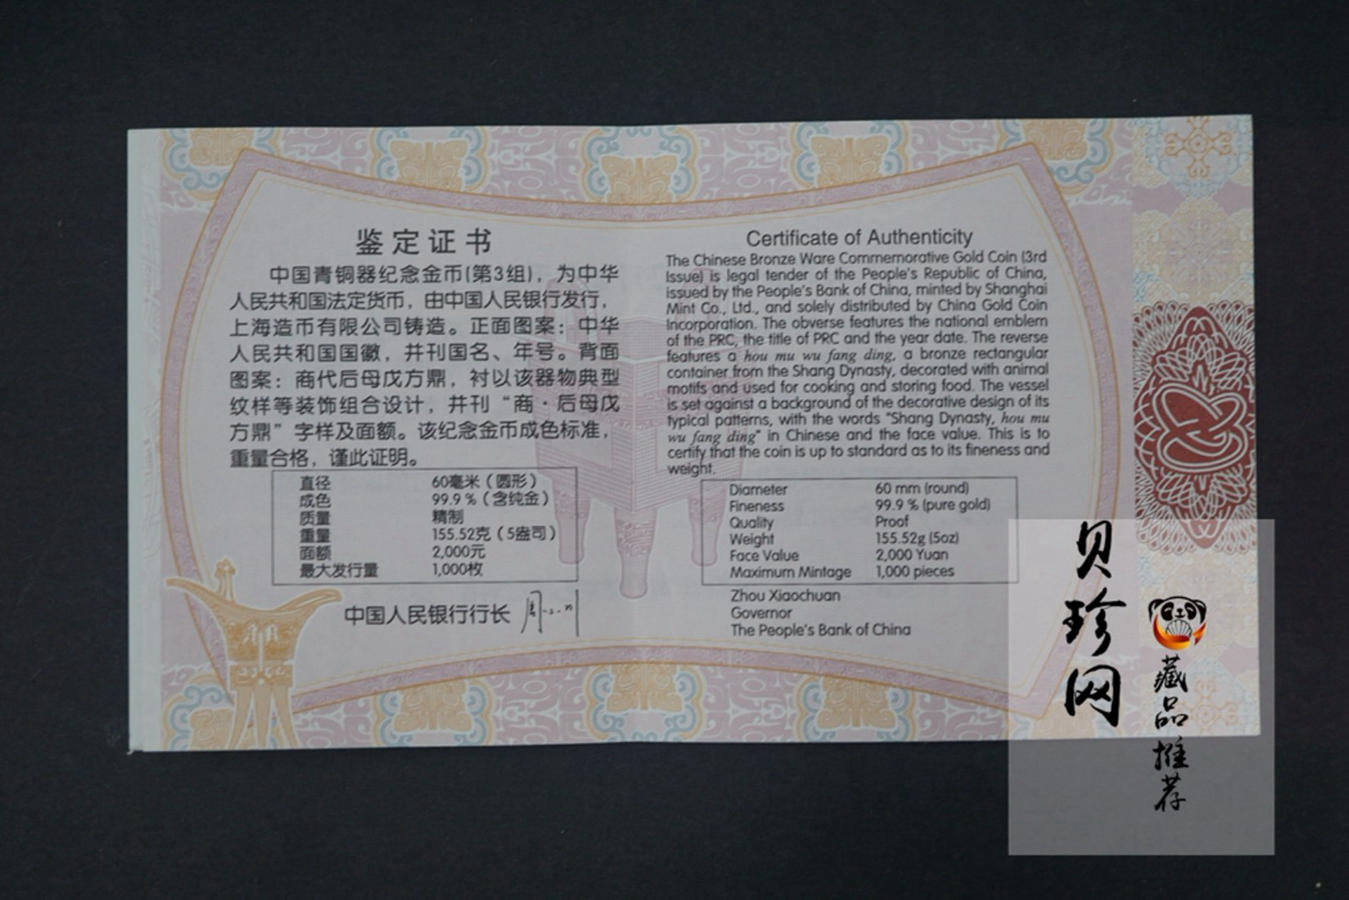 鉴定证书
中国青铜器纪念金币(第3组)，为中华
人民共和国法定货币，由中国人民银行发行，
上海造币有限公司铸造。正面图案：中华
人民共和国国徽，并刊国名、年号。背面
图案：商代后母戊方鼎，衬以该器物典型
纹样等装饰组合设计，并刊“商·后母戊
方鼎”字样及面额。该纪念金币成色标准，
重量合格，谨此证明。
直径 60毫米（圆形）
成色 99.9%（含纯金）
质量 精制
重量 155.52克（5盎司）
面额 2,000元
最大发行量 1,000枚
中国人民银行行长
Certificate of Authenticity
The Chinese Bronze Ware Commemorative Gold Coin (3rd
Issue) is legal tender of the People's Republic of China,
issued by the People's Bank of China, minted by Shanghai
Mint Co., Ltd., and solely distributed by China Gold Coin
Incorporation. The obverse features the national emblem
of the PRC, the title of PRC and the year date. The reverse
features a hou mu wu fang ding, a bronze rectangular
container from the Shang Dynasty, decorated with animal
motifs and used for cooking and storing food. The vessel
is set against a background of the decorative design of its
typical patterns, with the words "Shang Dynasty, hou mu
wu fang ding" in Chinese and the face value. This is to
certify that the coin is up to standard as to its fineness and
weight.
Diameter 60 mm (round)
Fineness 99.9 % (pure gold)
Quality Proof
Weight 155.52g (5oz)
Face Value 2,000 Yuan
Maximum Mintage 1,000 pieces
Zhou Xiaochuan
Governor
The People's Bank of China
贝珍网
藏品推荐